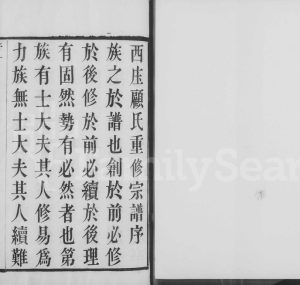 西庄顧氏重修宗譜序
族之於譜也創於前必修
於後修於前必續於後理
有固然勢有必然者也第
族有士大夫其人修易為
力族無士大夫其人續難